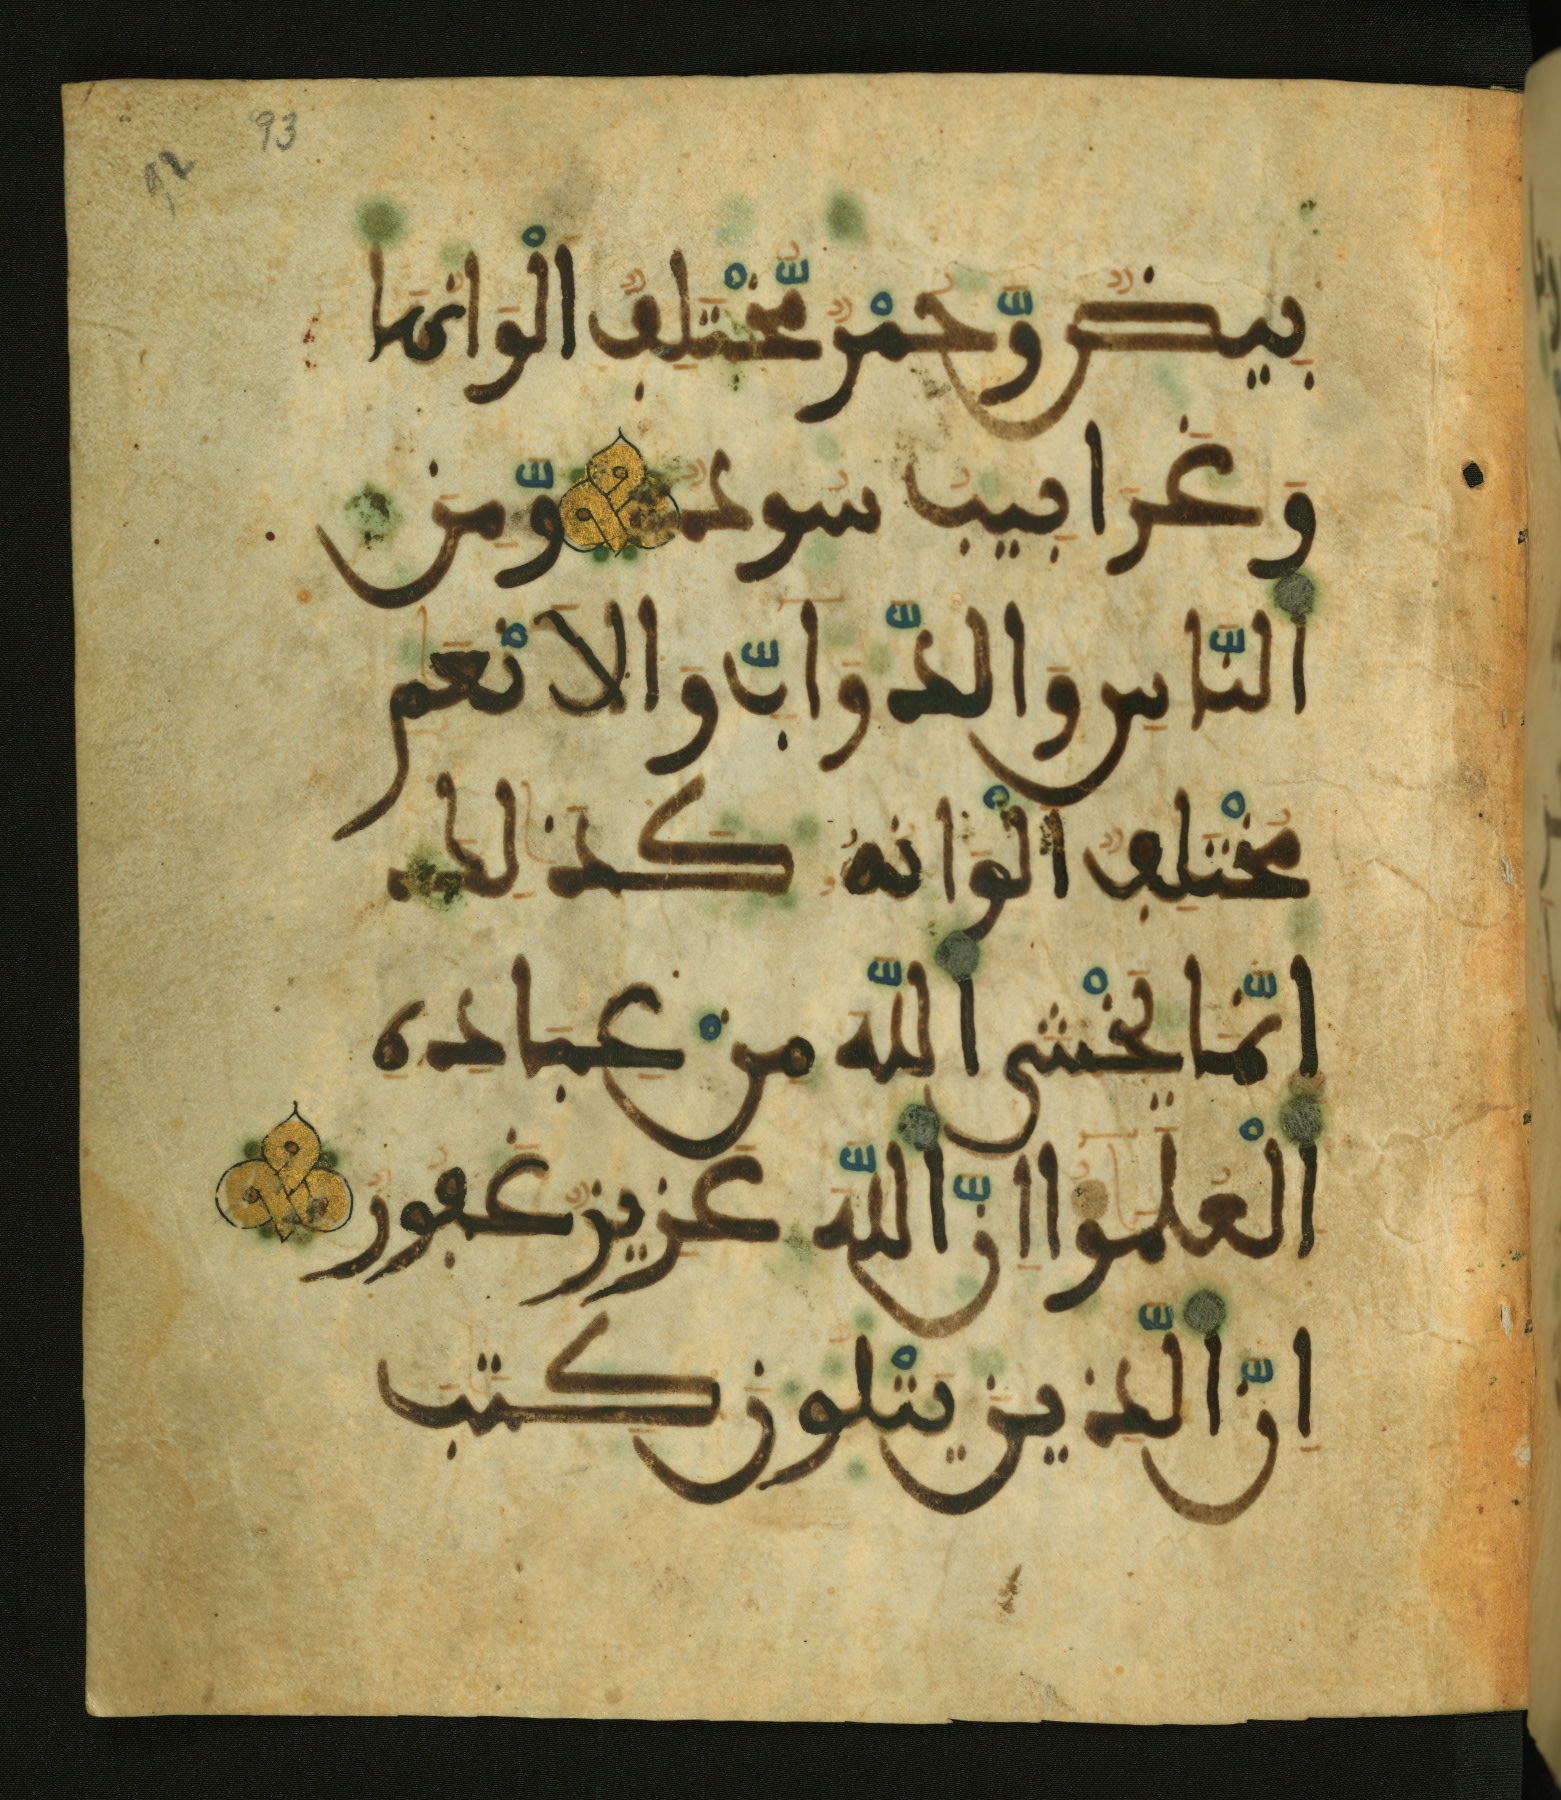 93
92
بِيضٌ وَّحُمْرٌ مُّخْتَلِفٌ اَلْوَانُهَا
وَغَرَابِيبُ سُودٌ وَّمِنَ
اَلنَّاسِ وَالدَّوَآبِّ وَالَانْعَٰمِ
مُخْتَلِفٌ اَلْوَانُهُ كَذَٰلِكَ
اِنَّمَا يَخْشَى اَللَّهَ مِنْ عِبَادِهِ
اَلْعُلَمَٰٓؤُا اِنَّ اَللَّهَ عَزِيزٌ غَفُورٌ
اِنَّ اَلَّذِينَ يَتْلُونَ كِتَبَ